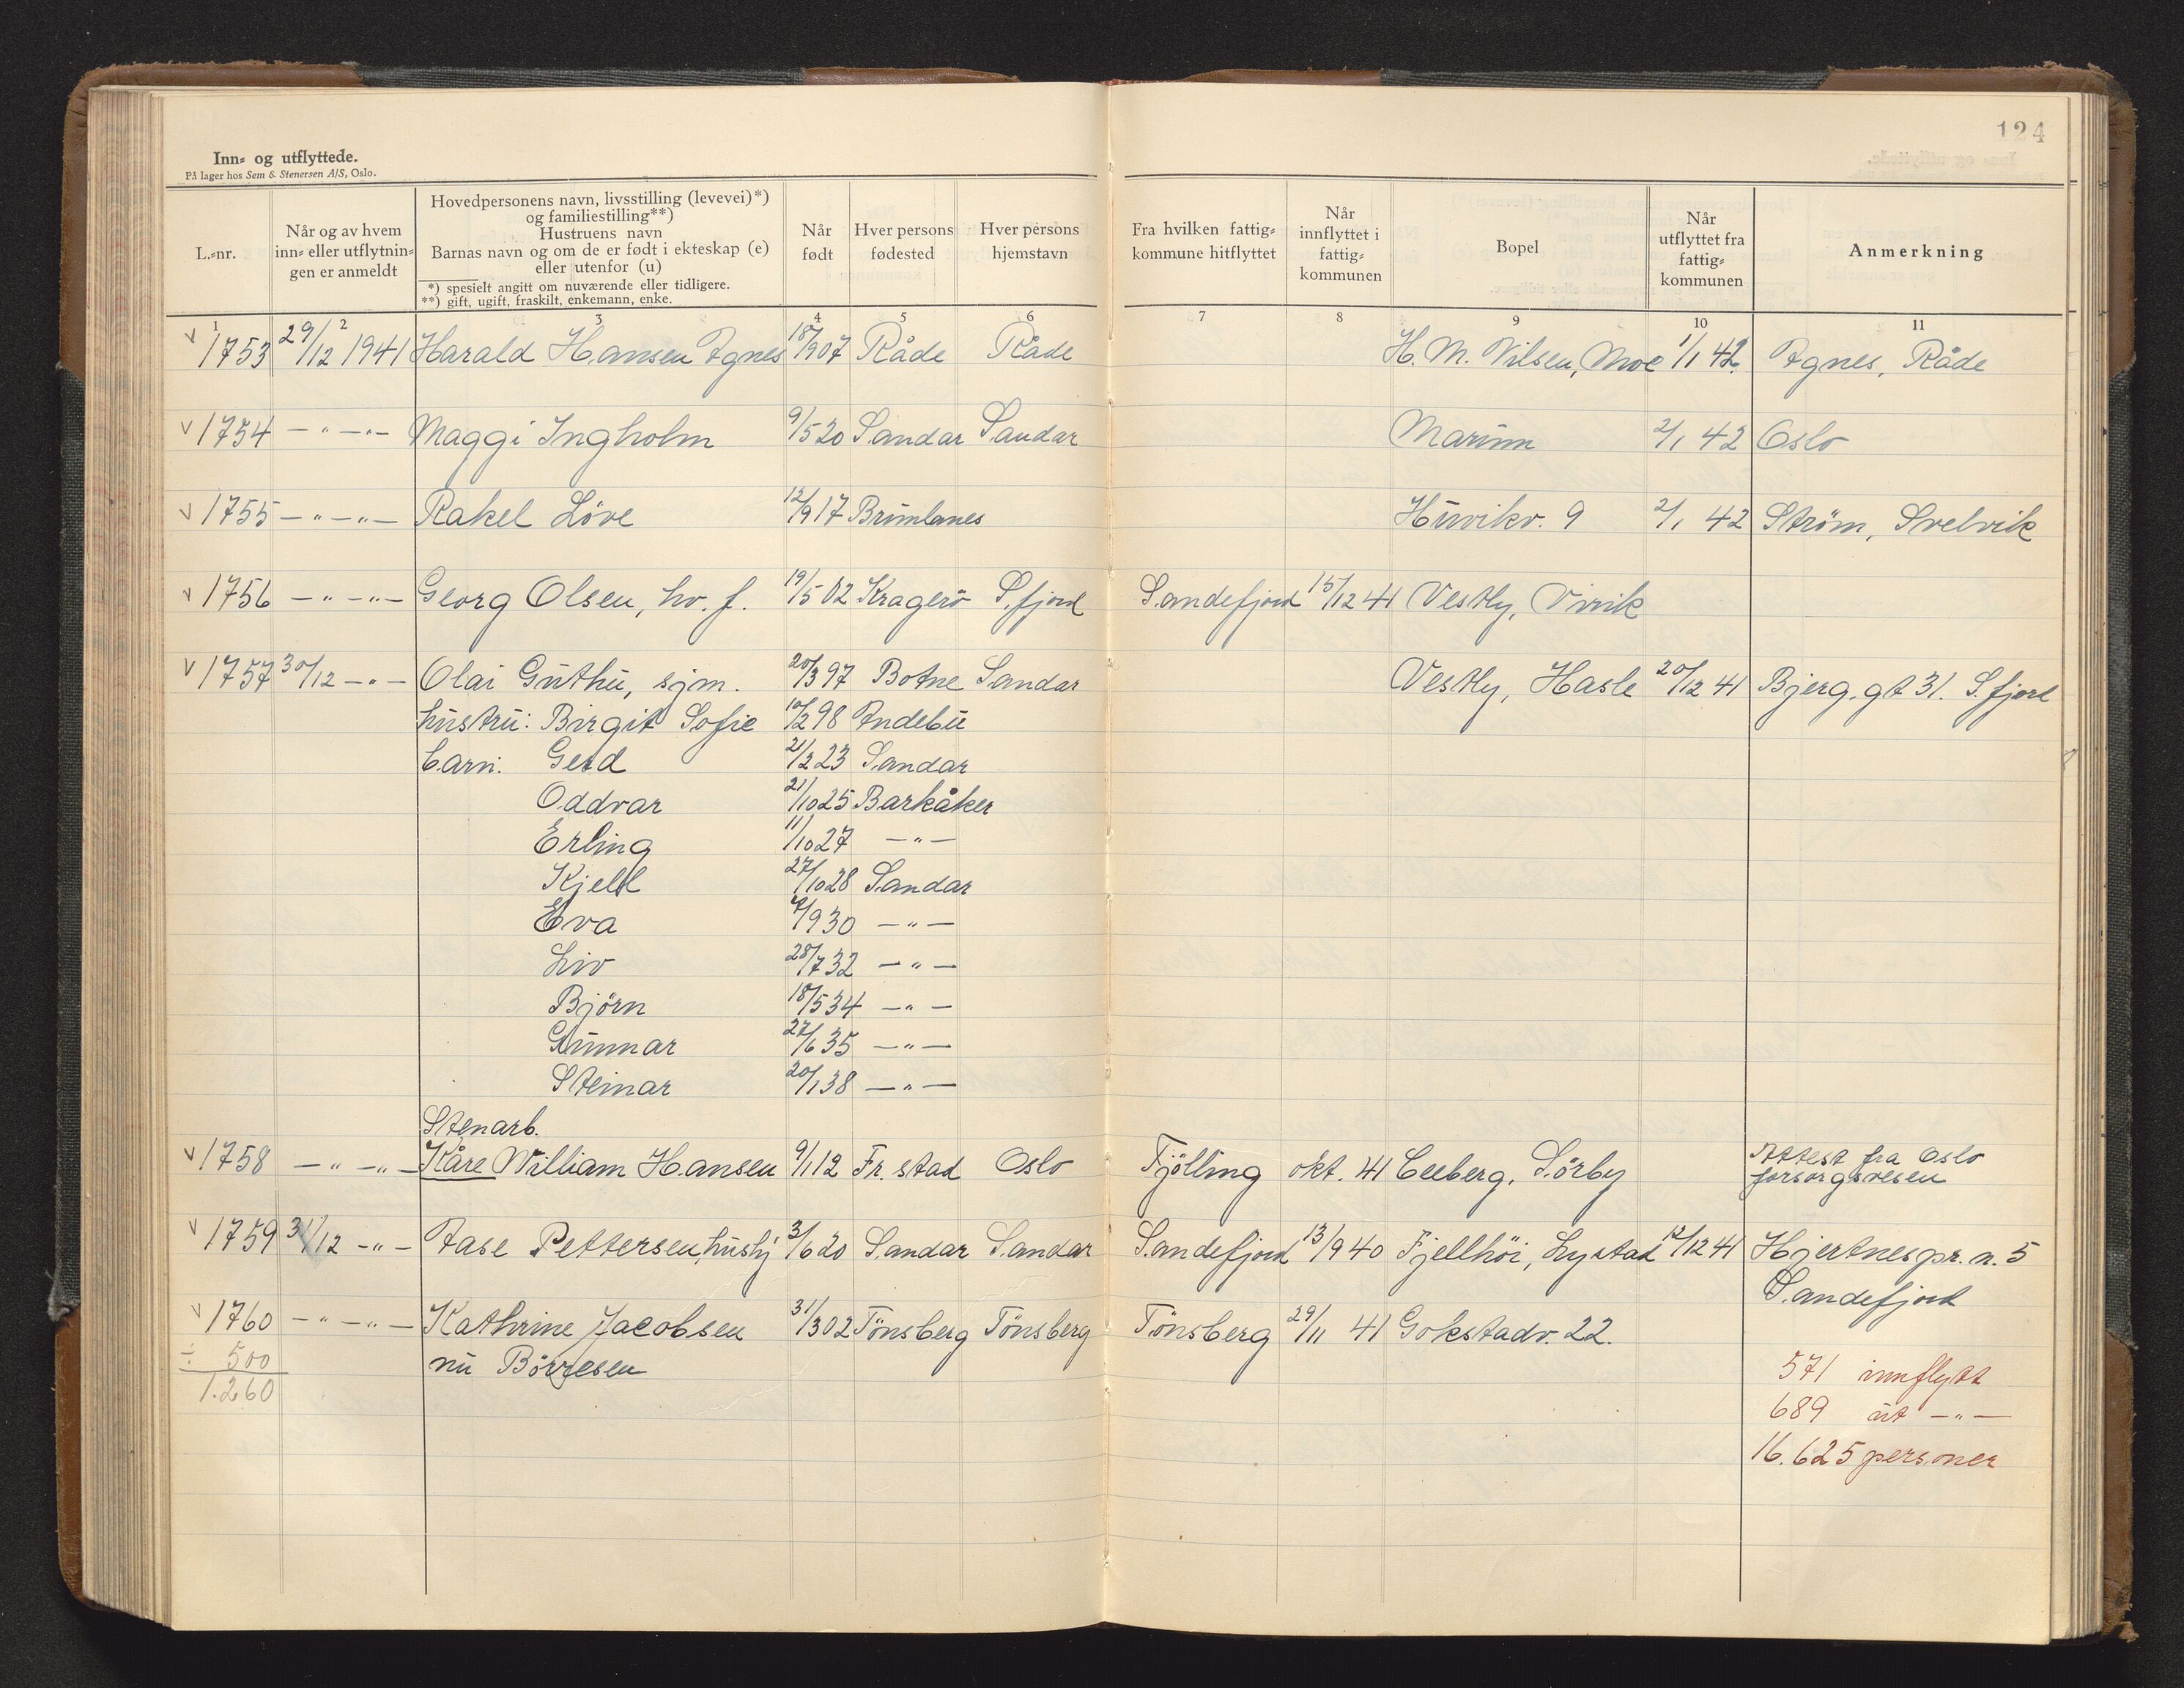 124
Inn- og utflyttede.
På lager hos Sem & Stenersen A/S, Oslo.
L.-nr.
Når og av hvem inn- eller utflytnin- gen er anmeldt
Hovedpersonens navn, livsstilling (levevei)*)
og familiestilling**)
Hustruens navn
Barnas navn og om de er født i ekteskap (e)
eller utenfor (u)
*) spesielt angitt om nuværende eller tidligere.
**) gift, ugift, fraskilt, enkemann, enke.
Når født
Hver persons fødested
Hver persons hjemstavn
Fra hvilken fattig- kommune hitflyttet
Når innflyttet i fattig- kommunen
Bopel
Når utflyttet fra fattig- kommunen
Anmerkning
1 2 3 4 5 6 7 8 9 10 11
v 1753 29/12 1941 Harald Hansen Agnes 18/9 07 Råde Råde H. M. Nilsen, Moe 1/1 42. Agnes, Råde
v 1754 —"—"— Maggi Ingholm 9/5 20 Sandar Sandar Marum 2/1 42 Oslo
v 1755 —"—"— Rakel Löve 12/9 17 Brunlanes Huvikv. 9 2/1 42 Ström, Svelvik
v 1756 —"—"— Georg Olsen, hv. f. 19/5 02 Kragerö S.fjord Sandefjord 15/12 41 Vestly, Virik
v 1757 30/12 —"— Olai Guthu, sjm. 20/3 97 Botne Sandar Vestly, Hasle 20/12 41 Bjerg.gt 31. S.fjord
hustru: Birgit Sofie 10/2 98 Andebu
barn: Gerd 21/2 23 Sandar
Oddvar 21/10 25 Barkåker
Erling 11/10 27 —"—
Kjell 27/10 28 Sandar
Eva /9 30 —"—
Liv 28/7 32 —"—
Björn 18/5 34 —"—
Gunnar 27/6 35 —"—
Steinar 20/1 38 —"—
Stenarb.
v 1758 —"—"— Kåre William Hansen 9/1 12 Fr.stad Oslo Tjölling okt. 41 Ceeberg, Sörby Attest fra Oslo
forsorgsvesen
v 1759 31/12 —"— Aase Pettersen, hushj 3/6 20 Sandar Sandar Sandefjord 13/9 40 Fjellhöi, Lystad 12/12 41 Hjertnespr. n. 5
Sandefjord
v 1760 —"—"— Kathrine Jacobsen 31/3 02 Tönsberg Tönsberg Tönsberg 29/11 41 Gokstadv. 22.
÷ 500 nu Börresen
1.260
571 innflytt
689 ut —"—
16.625 personer